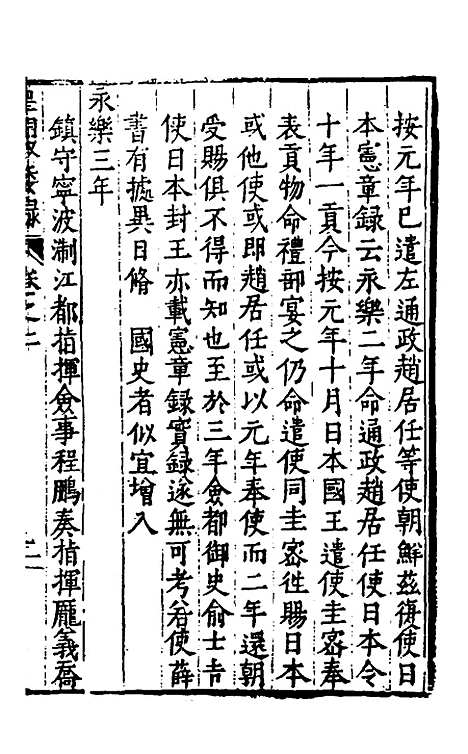 按元年已遣左通政趙居任等使朝鮮茲復使日
本憲章録云永樂二年命通政趙居任使日本令
十年一貢今按元年十月日本國王遣使圭宻奉
表貢物命禮部宴之仍命遣使同圭宻徃賜日本
或他使或即趙居任或以元年奉使而二年還朝
受賜俱不得而知也至於三年僉都御史俞士吉
使日本封王亦載憲章録實録遂無可考若使薛
書有據異日脩　國史者似宜增入
永樂三年
鎮守寧波淛江都指揮僉事程鵬奏指揮龎義喬
卷之二
二